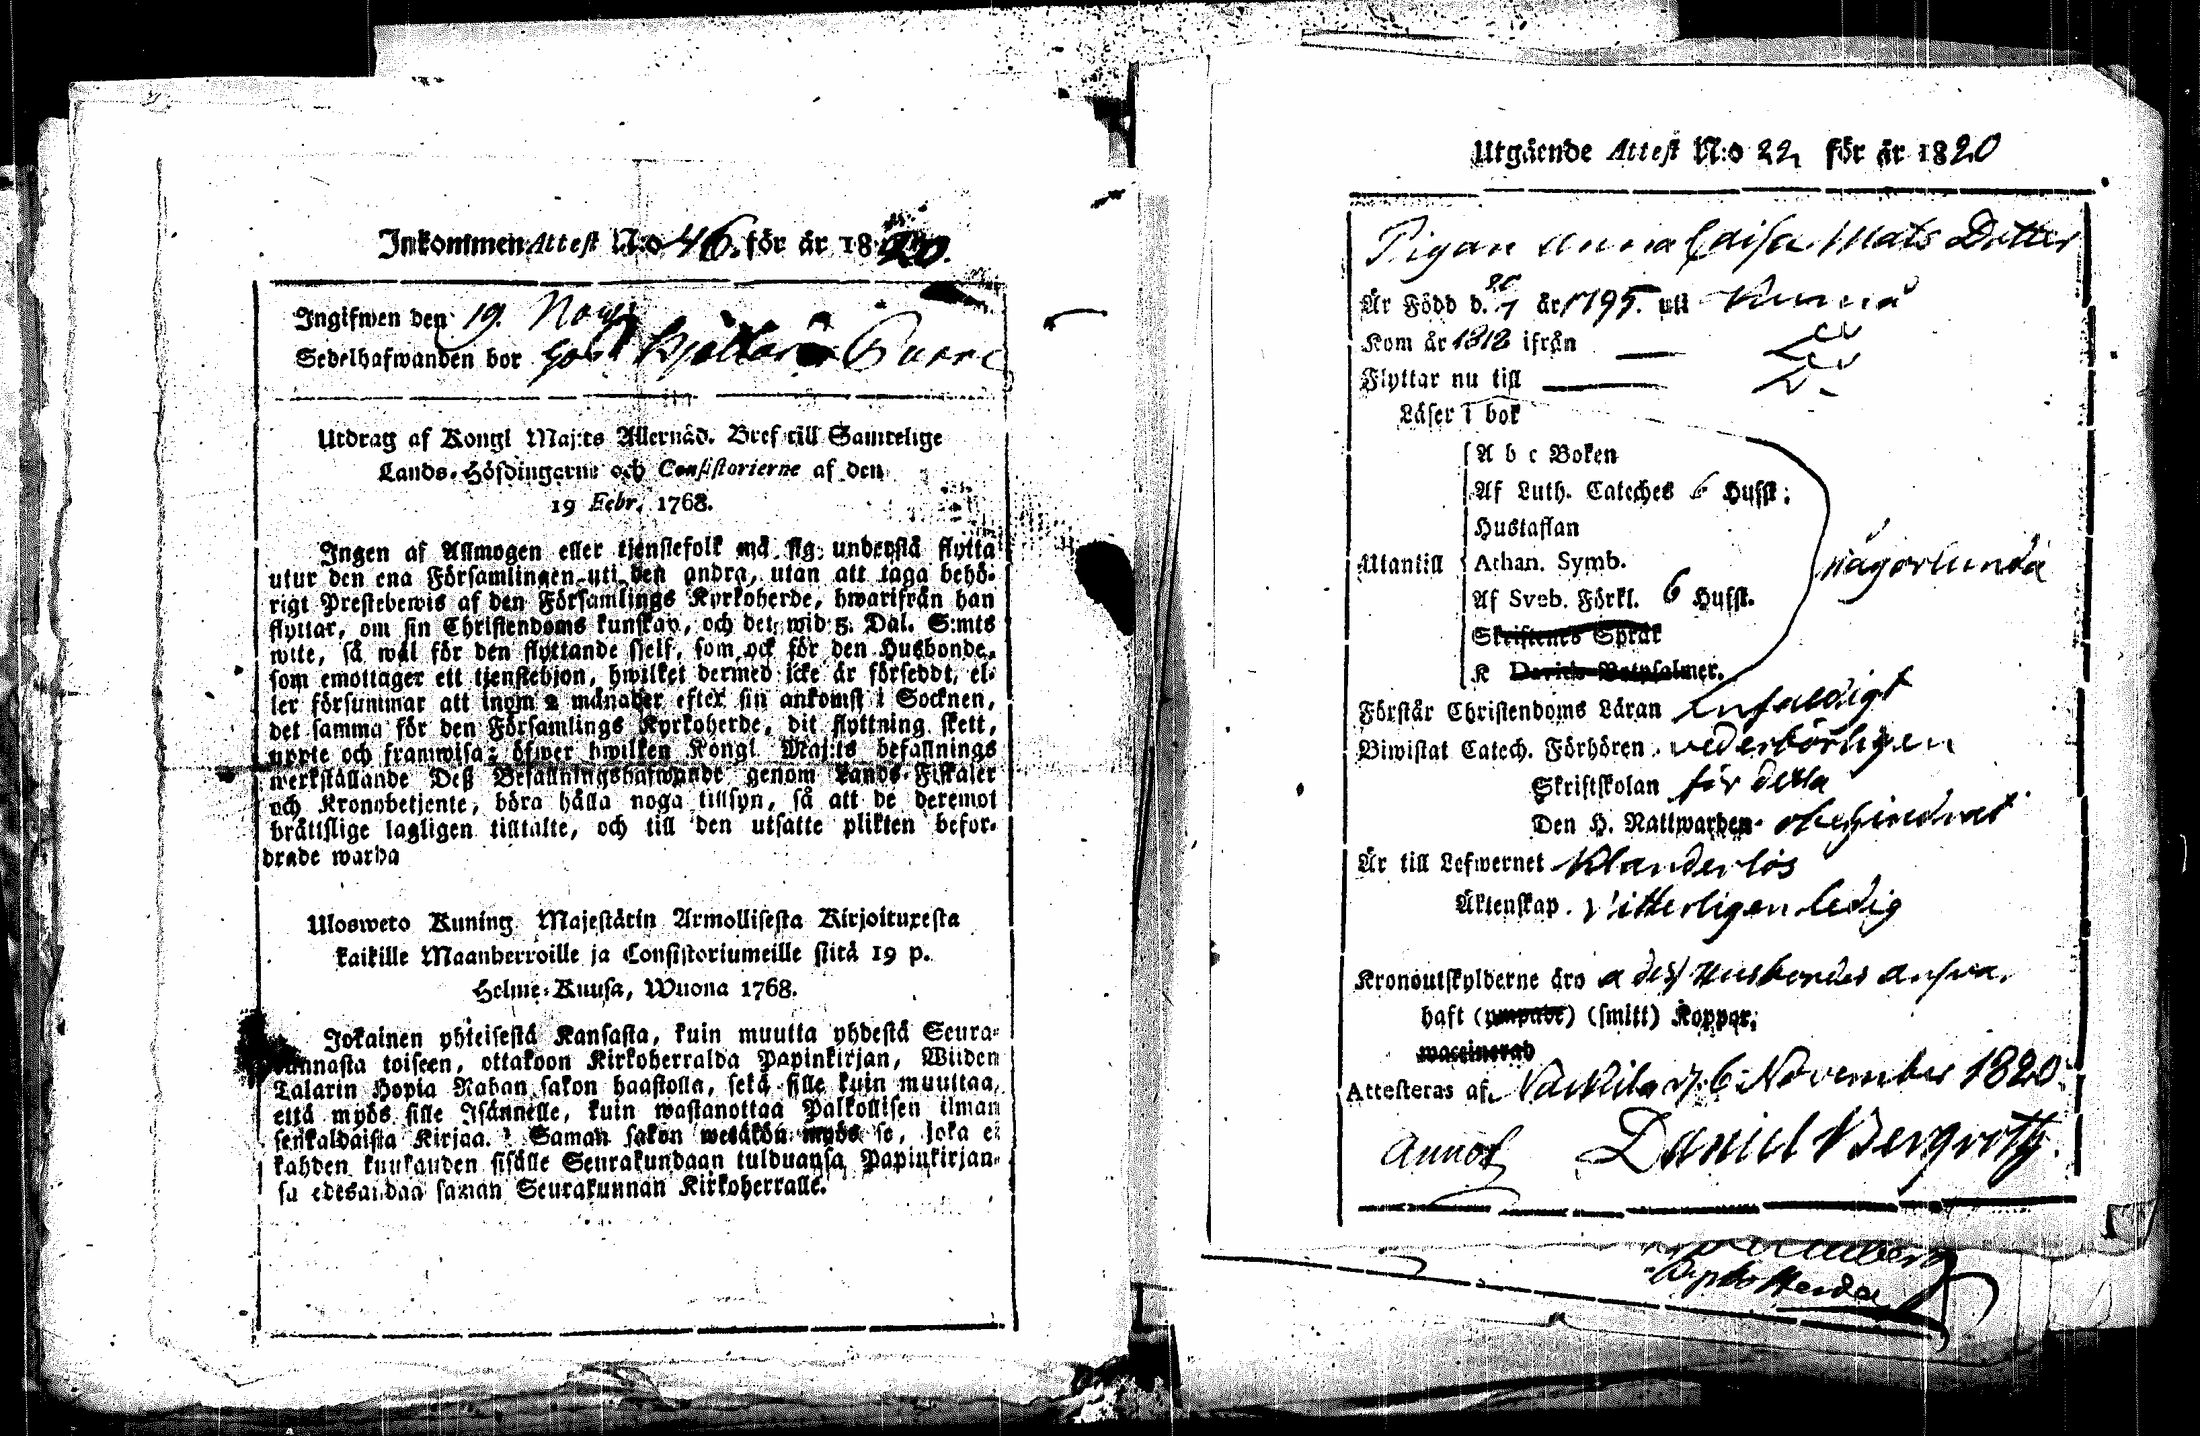 Inkommen Attest N:o 46. för år 1820.
Ingifwen den 19. Nov.
Sedelhafwanden bor hos
Utdrag af Kongl Maj:ts Allernåd. Bref till Samtelige
Lands-Höfdingarne och Consistorierne af den
19 Febr. 1768.
Ingen af Allmogen eller tjenstefolk må sig understå flytta
utur den ena Församlingen uti den andra, utan att taga behö-
rigt Prestebewis af den Församlings Kyrkoherde, hwarifrån han
flyttar, om sin Christendoms kunskap, och det wid 5. Dal. S:mts
wite, så wäl för den flyttande sjelf, som ock för den Husbonde,
som emottager ett tjenstehjon, hwilket dermed icke är försedt, el-
ler försummar att inom 2 månader efter sin ankomst i Socknen,
det samma för den Församlings Kyrkoherde, dit flyttning skett,
uppte och framwisa; öfwer hwilken Kongl. Maj:ts befallnings
werkställande Deß Befallningshafwande genom Lands-Fiskaler
och Kronobetjente, böra hålla noga tillsyn, så att de deremot
bråttslige lagligen tilltalte, och till den utsatte plikten befor-
drade warda
Ulosweto Kuning. Majestätin Armollisesta Kirjoituxesta
kaikille Maanherroille ja Consistoriumeille siitä 19 p.
Helme-Kuusa, Wuona 1768.
Jokainen yhteisestä Kansasta, kuin muutta yhdestä Seura-
kunnasta toiseen, ottakoon Kirkoherralda Papinkirjan, Wiiden
Talarin Hopia Rahan sakon haastolla, sekä sille kuin muuttaa,
että myös sille Isännelle, kuin wastanottaa Palkollisen ilman
senkaldaista Kirjaa. Saman sakon wetäkön myös se, joka ei
kahden kuukauden sisälle Seurakundaan tulduansa Papinkirjan-
sa edesandaa saman Seurakunnan Kirkoherralle.
Utgående Attest N:o 22 för år 1820
Pigan Anna Caisa Mats Dotter
Är Född d. år 1795. uti
Kom år 1818 ifrån
Flyttar nu till
Läser i bok
A b c Boken
Af Luth. Cateches 6 Hufst:
Hustaflan
Utantill Athan. Symb. någorlunda
Af Sveb. Förkl. 6 Hufst.
Skriftenes Språk
K Davids Botpsalmer.
Förstår Christendoms Läran enfaldigt
Biwistat Catech. Förhören vederbörligen
Skriftskolan för detta
Den H. Nattwarden obehindrat
Är till Lefwernet Klanderlös
Äktenskap. Vitterligen ledig
Kronoutskylderne äro å deß Husbondes answa.
haft (ympade) (smitt) Koppor;
waccinerad
Attesteras af. d. 6 November 1820.
Daniel Bergroth.